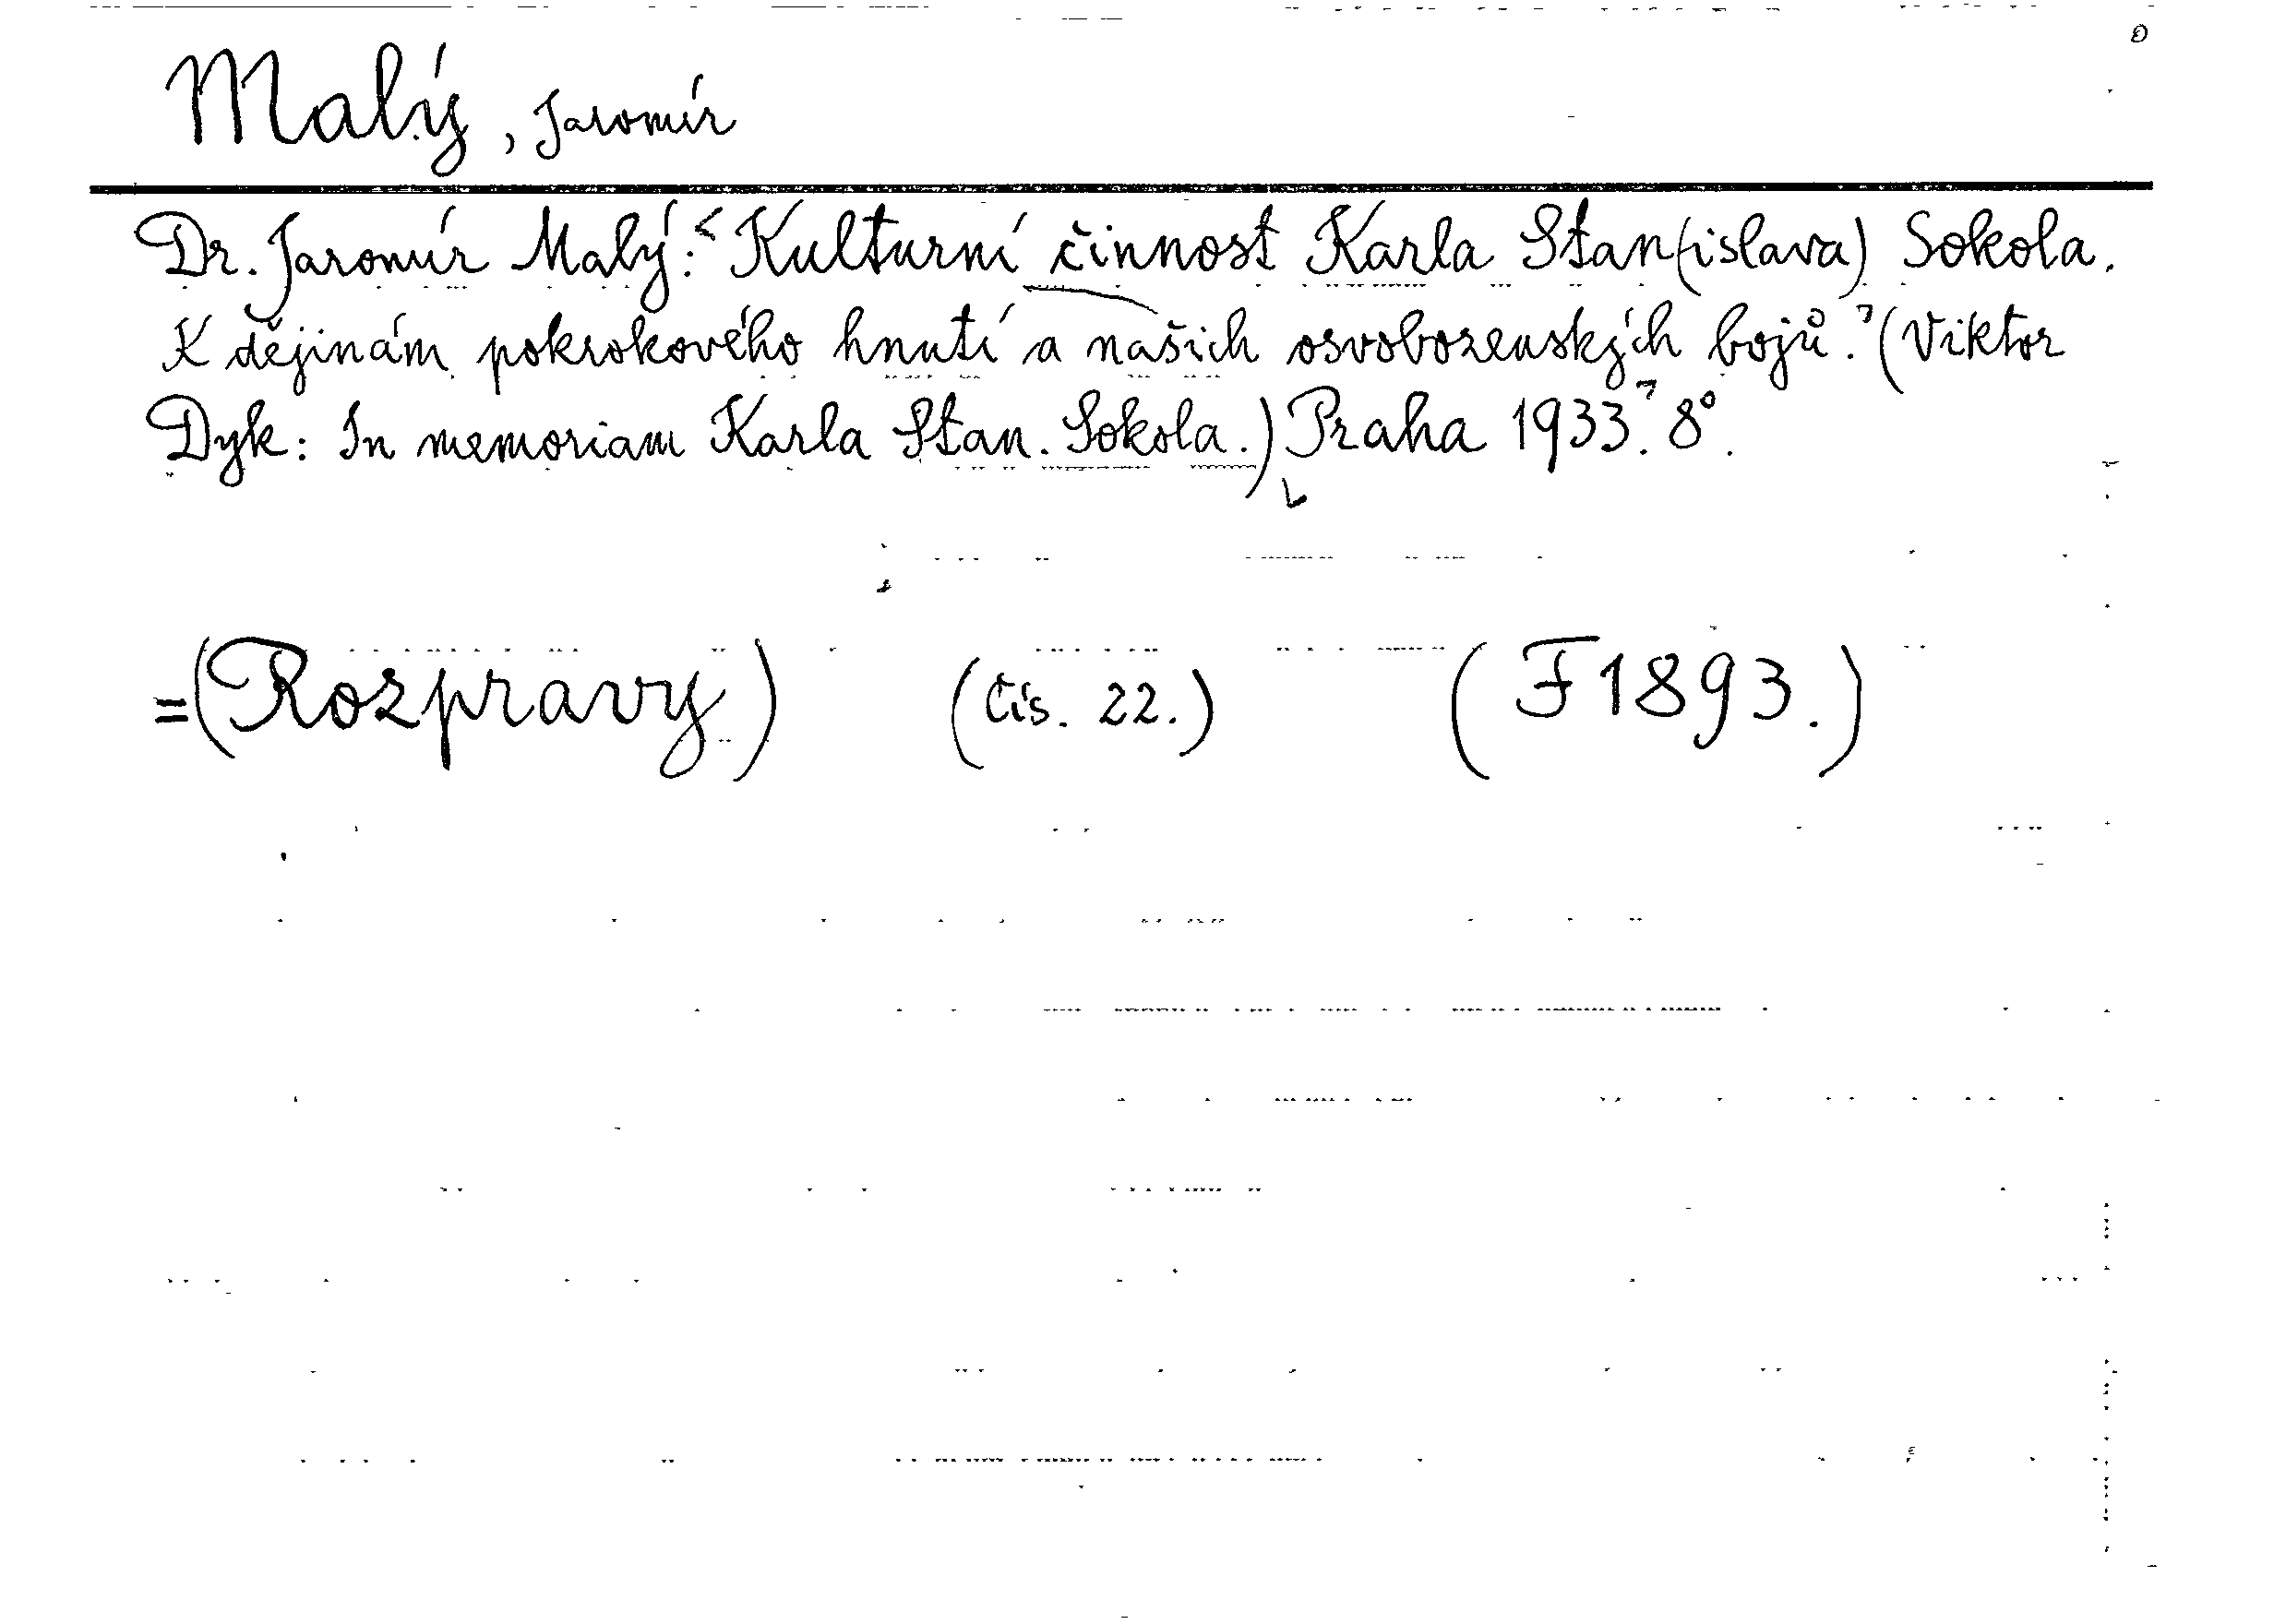 Malý, Jaromír
Dr. Jaromír Malý: Kulturní činnost Karla Stan(islava) Sokola.
K dějinám pokrokového hnutí a našich osvobozenských bojů. (Viktor
Dyk: In memoriam Karla Stan. Sokola.) Praha 1933. 8°.
=(Rozpravy) (čís. 22.) (F1893.)